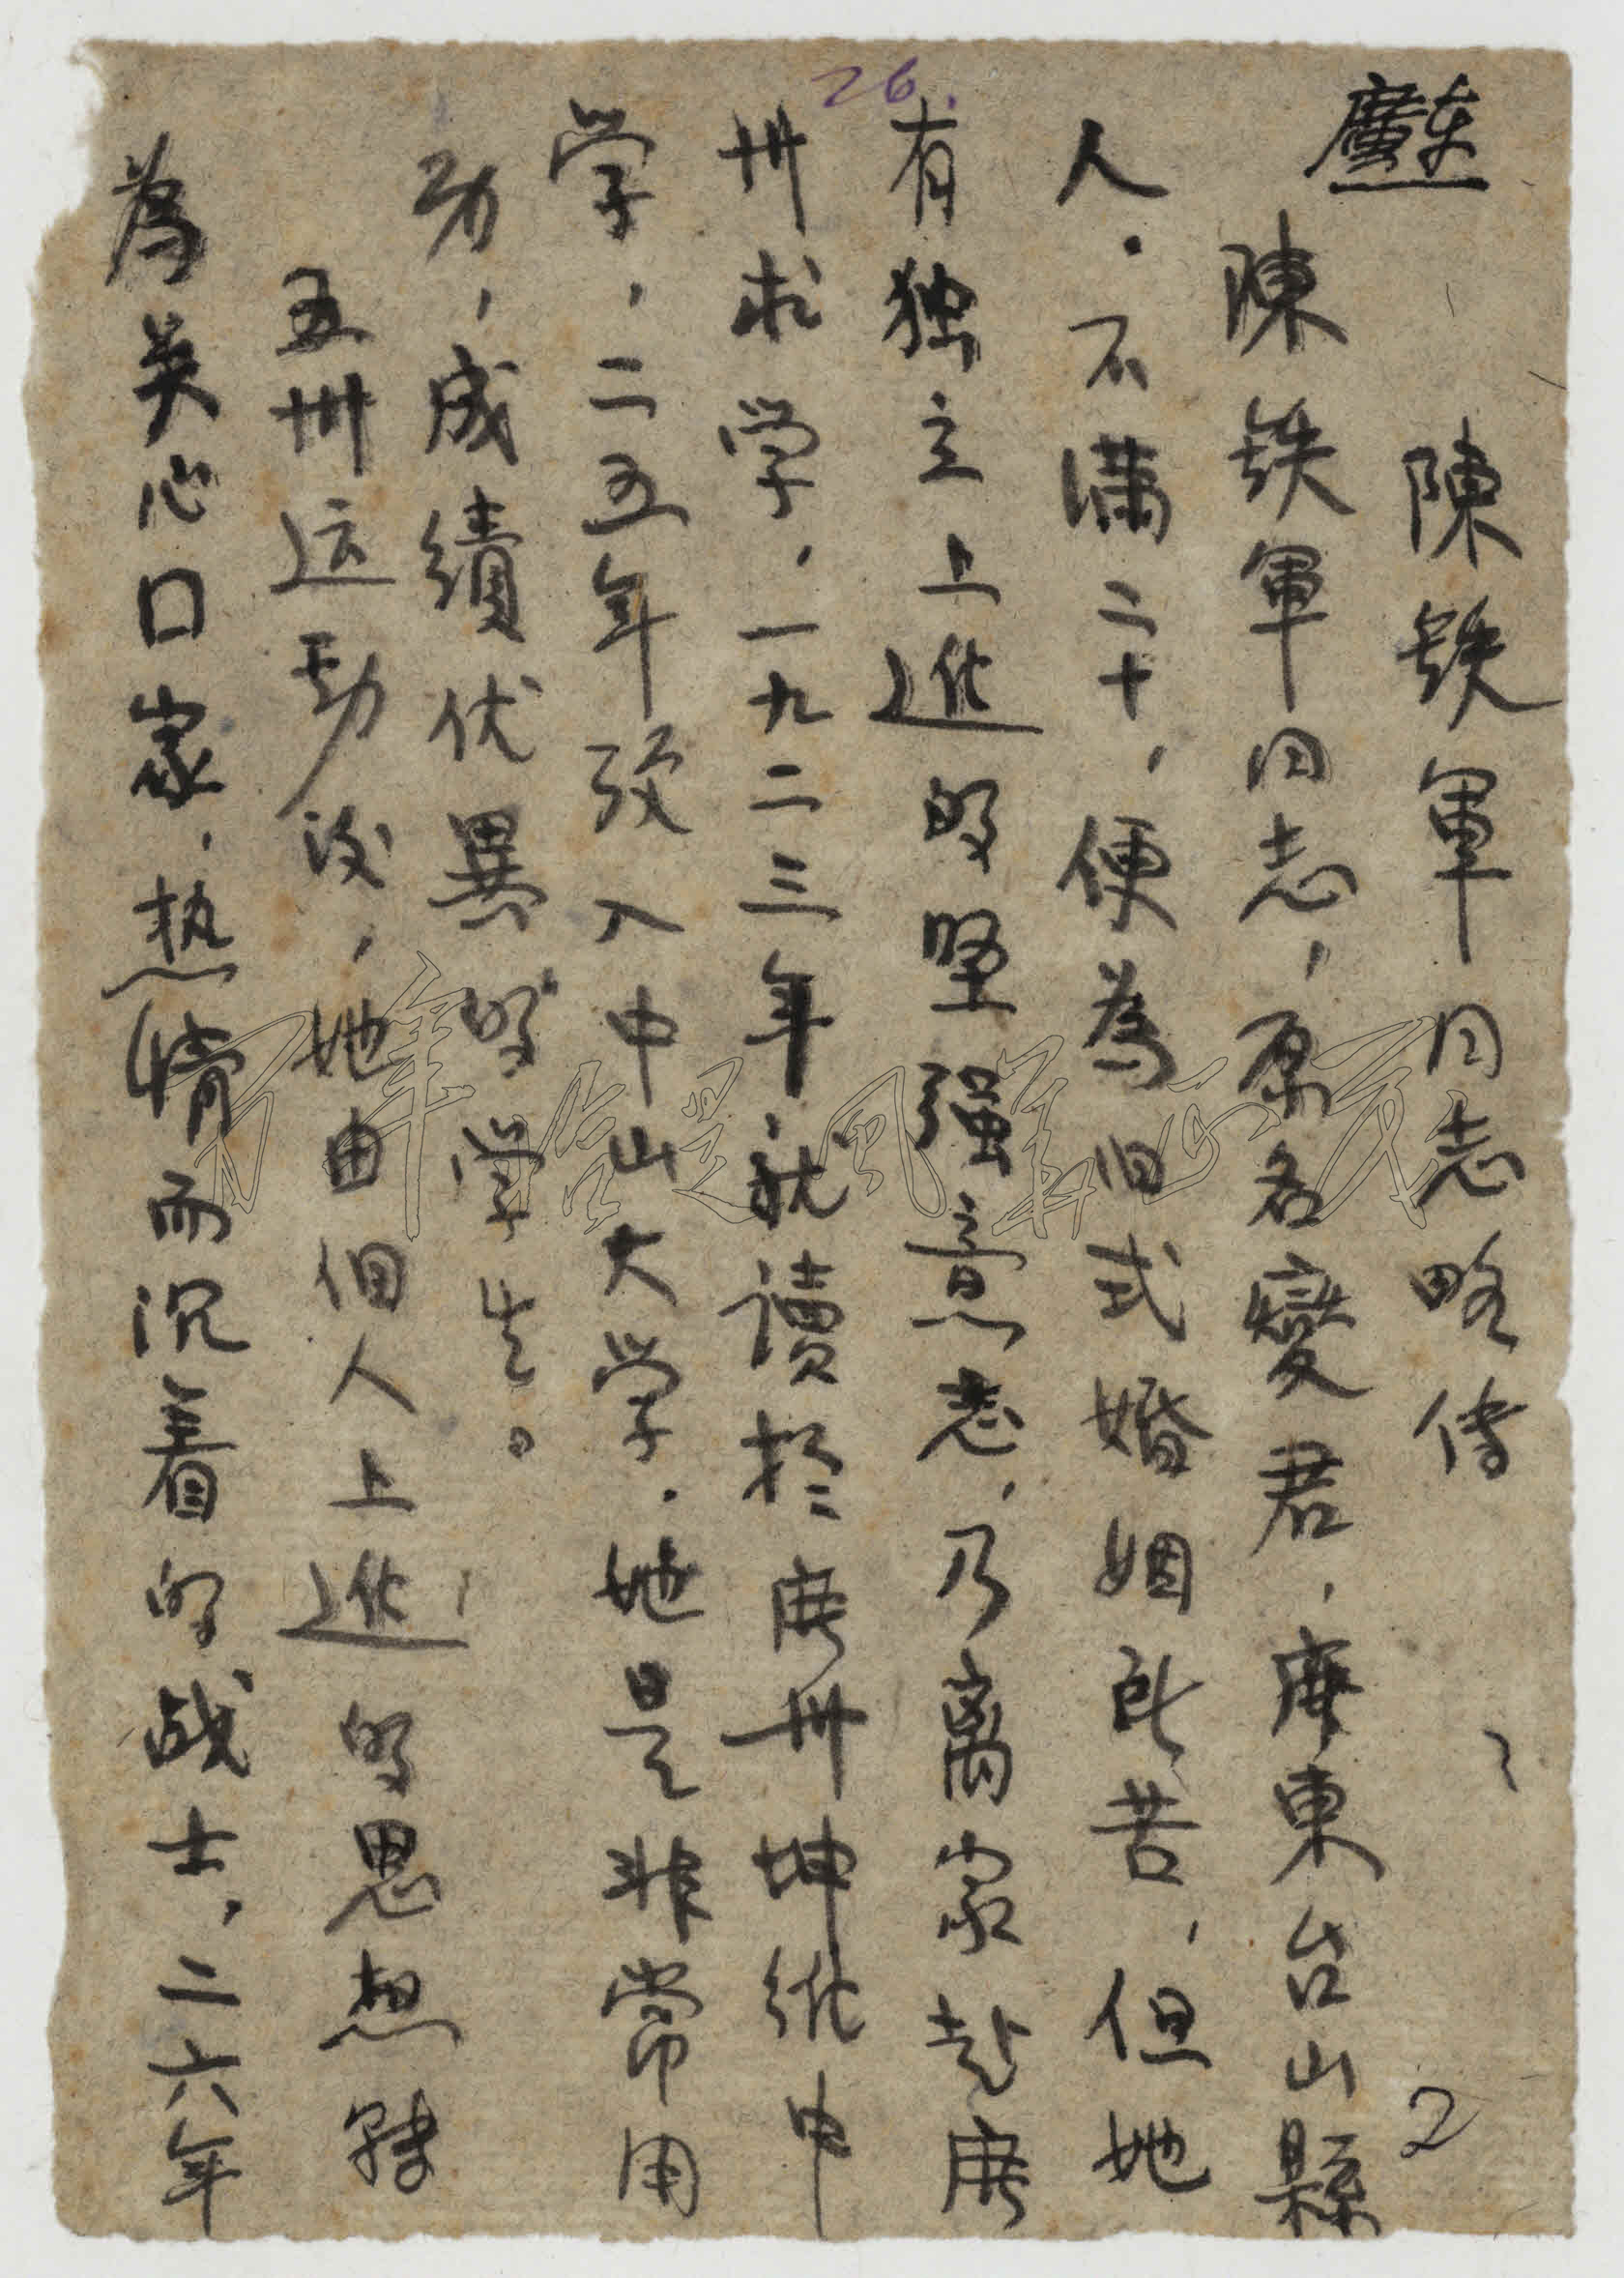 26.
廣東
陳鉄軍同志略傳
2
陳鉄軍同志，原名燮君，庲東台山縣
人．不满二十，便為旧式婚姻所苦，但她
有独立上進的坚强意志，乃离家赴庲
州求学，一九二三年就读於庲州坤維中
学，二五年攷入中山大学．她是非常用
功，成績优異的学生。
五卅运動后，她由個人上進的思想轉
為关心口家，热情而沉着的战士，二六年